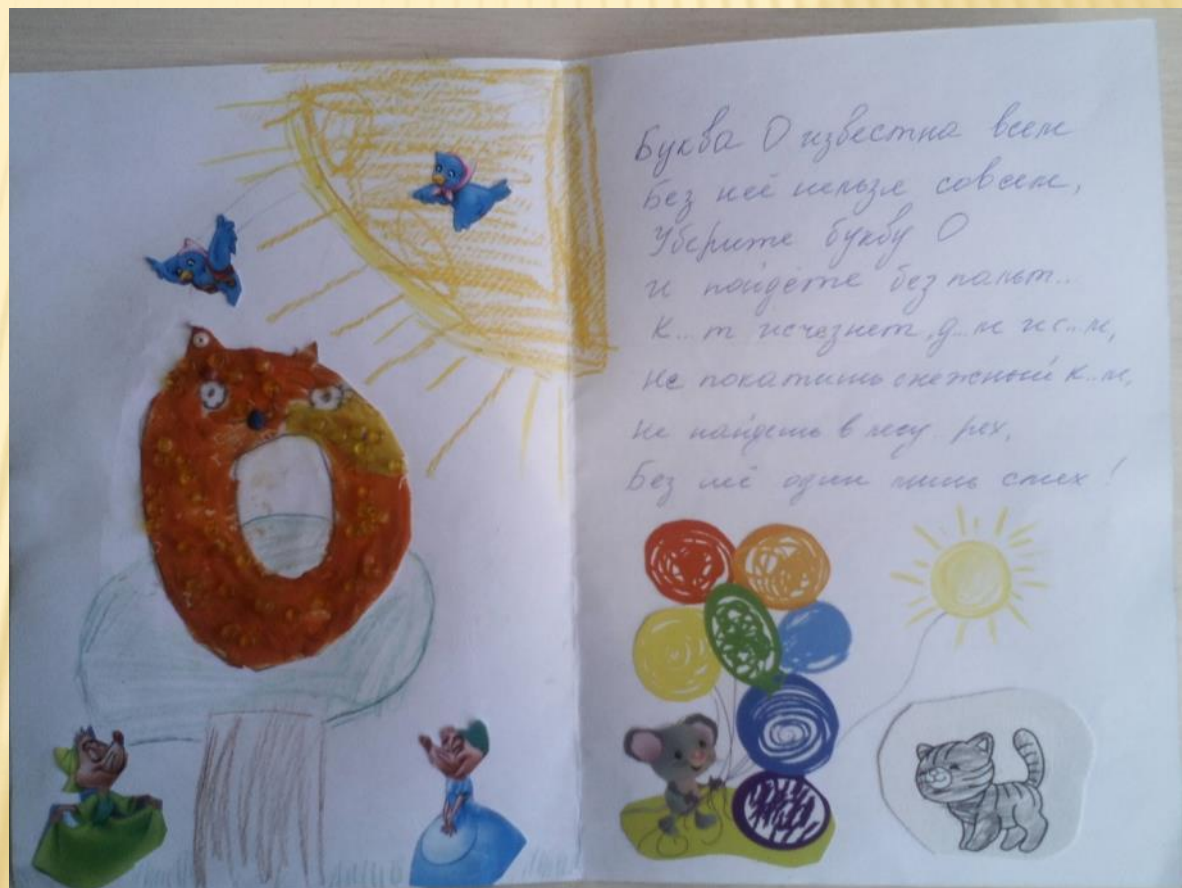 Буква О известна всем
Без неё нельзя совсем,
Уберите букву О
и пойдёте без пальт..
К...т исчезнет, д...м и с...м,
Не покатишь снежный к...м,
Не найдешь в лесу .рех,
Без неё один лишь смех!